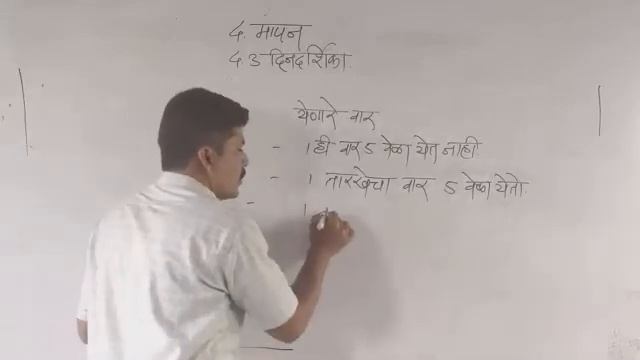 ४. मापन
४.३ दिनदर्शिका
येणारे वार
- । ही वार ५ वेळा येत नाही.
- । तारखेचा वार ५ वेळा येतो.
- ।